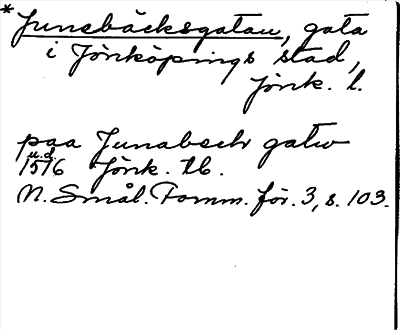 * Junebäcksgatan, gata
i Jönköpings stad,
Jönk. l.
paa Junabech gatw
u.d.
1516 Jönk. tb.
N. Smål. Fornm. för. 3, s. 103.